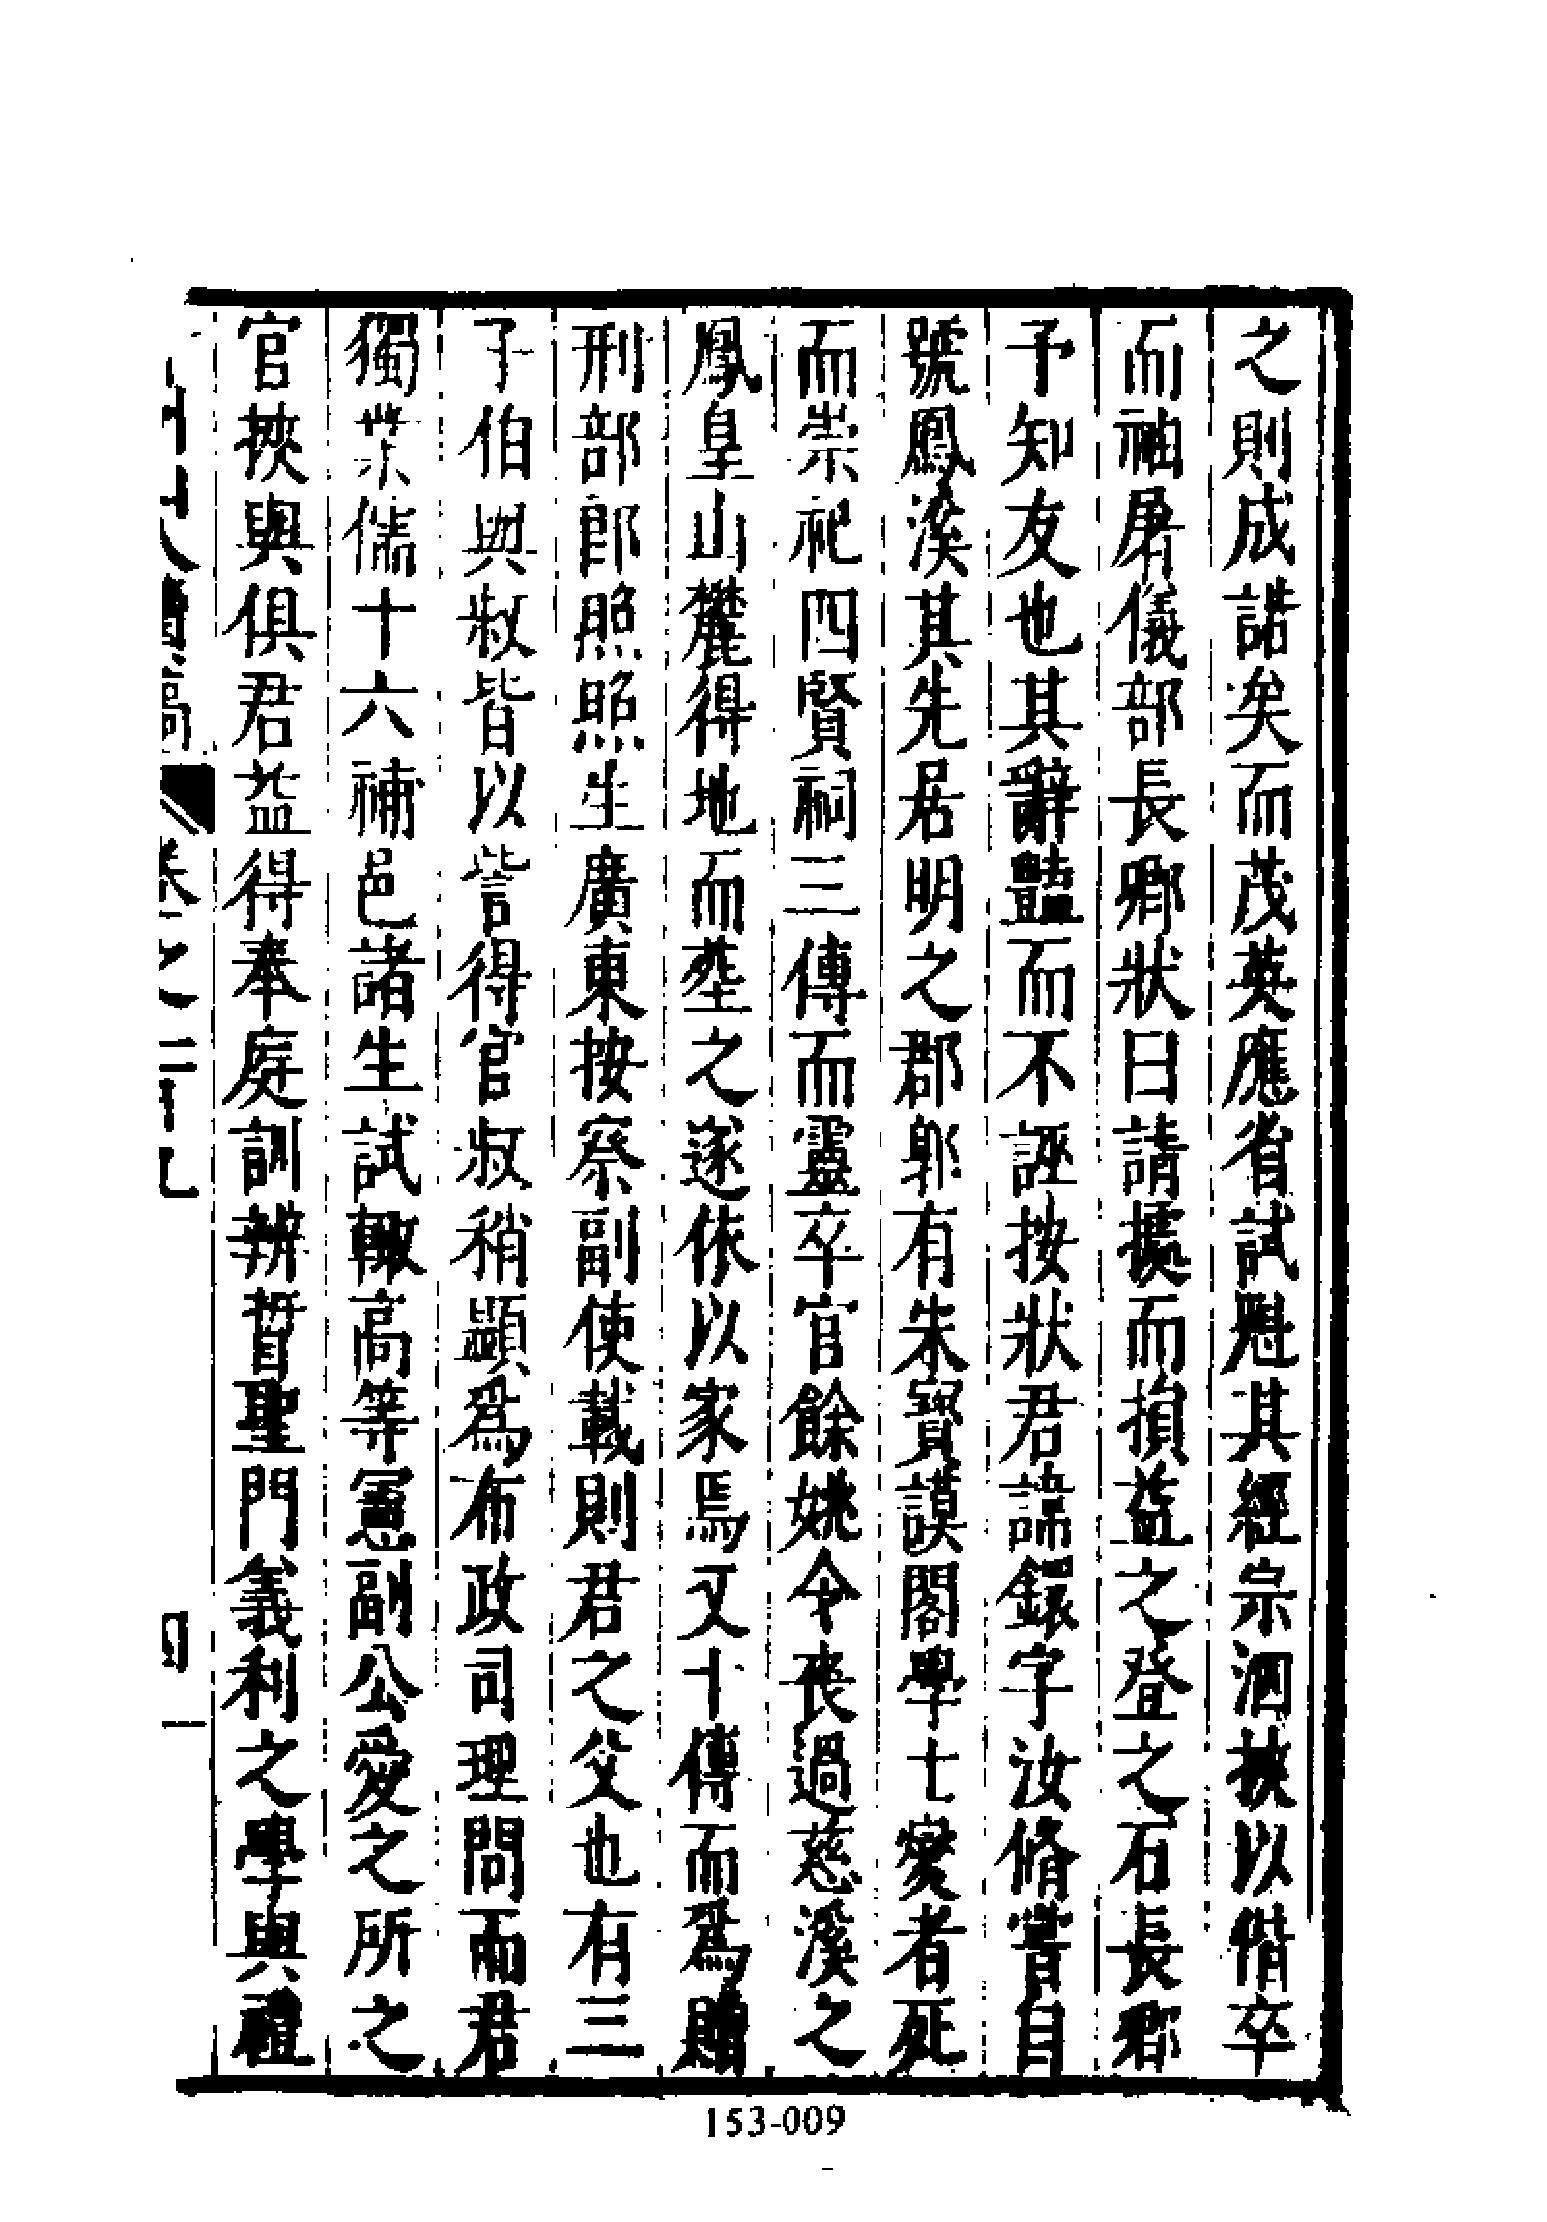 之則成諾矣而茂英應省試魁其經宗泗挾以偕卒
而袖屠儀部長卿狀曰請據而損益之登之石長卿
予知友也其辭豔而不誣按狀君諱鐶字汝脩嘗自
號鳳溪其先居明之郡鄞有朱寶謨閣學士夔者死
而崇祀四賢祠三傳而靈卒官餘姚令喪過慈溪之
鳳皇山麓得地而塟之遂依以家焉又十傳而爲贈
刑部郎照照生廣東按察副使載則君之父也有三
子伯與叔皆以訾得官叔稍顯爲布政司理問而君
獨業儒十六補邑諸生試輙高等憲副公愛之所之
官挾與俱君益得奉庭訓辨晢聖門義利之學與禮
卷之一百九
四
153-009